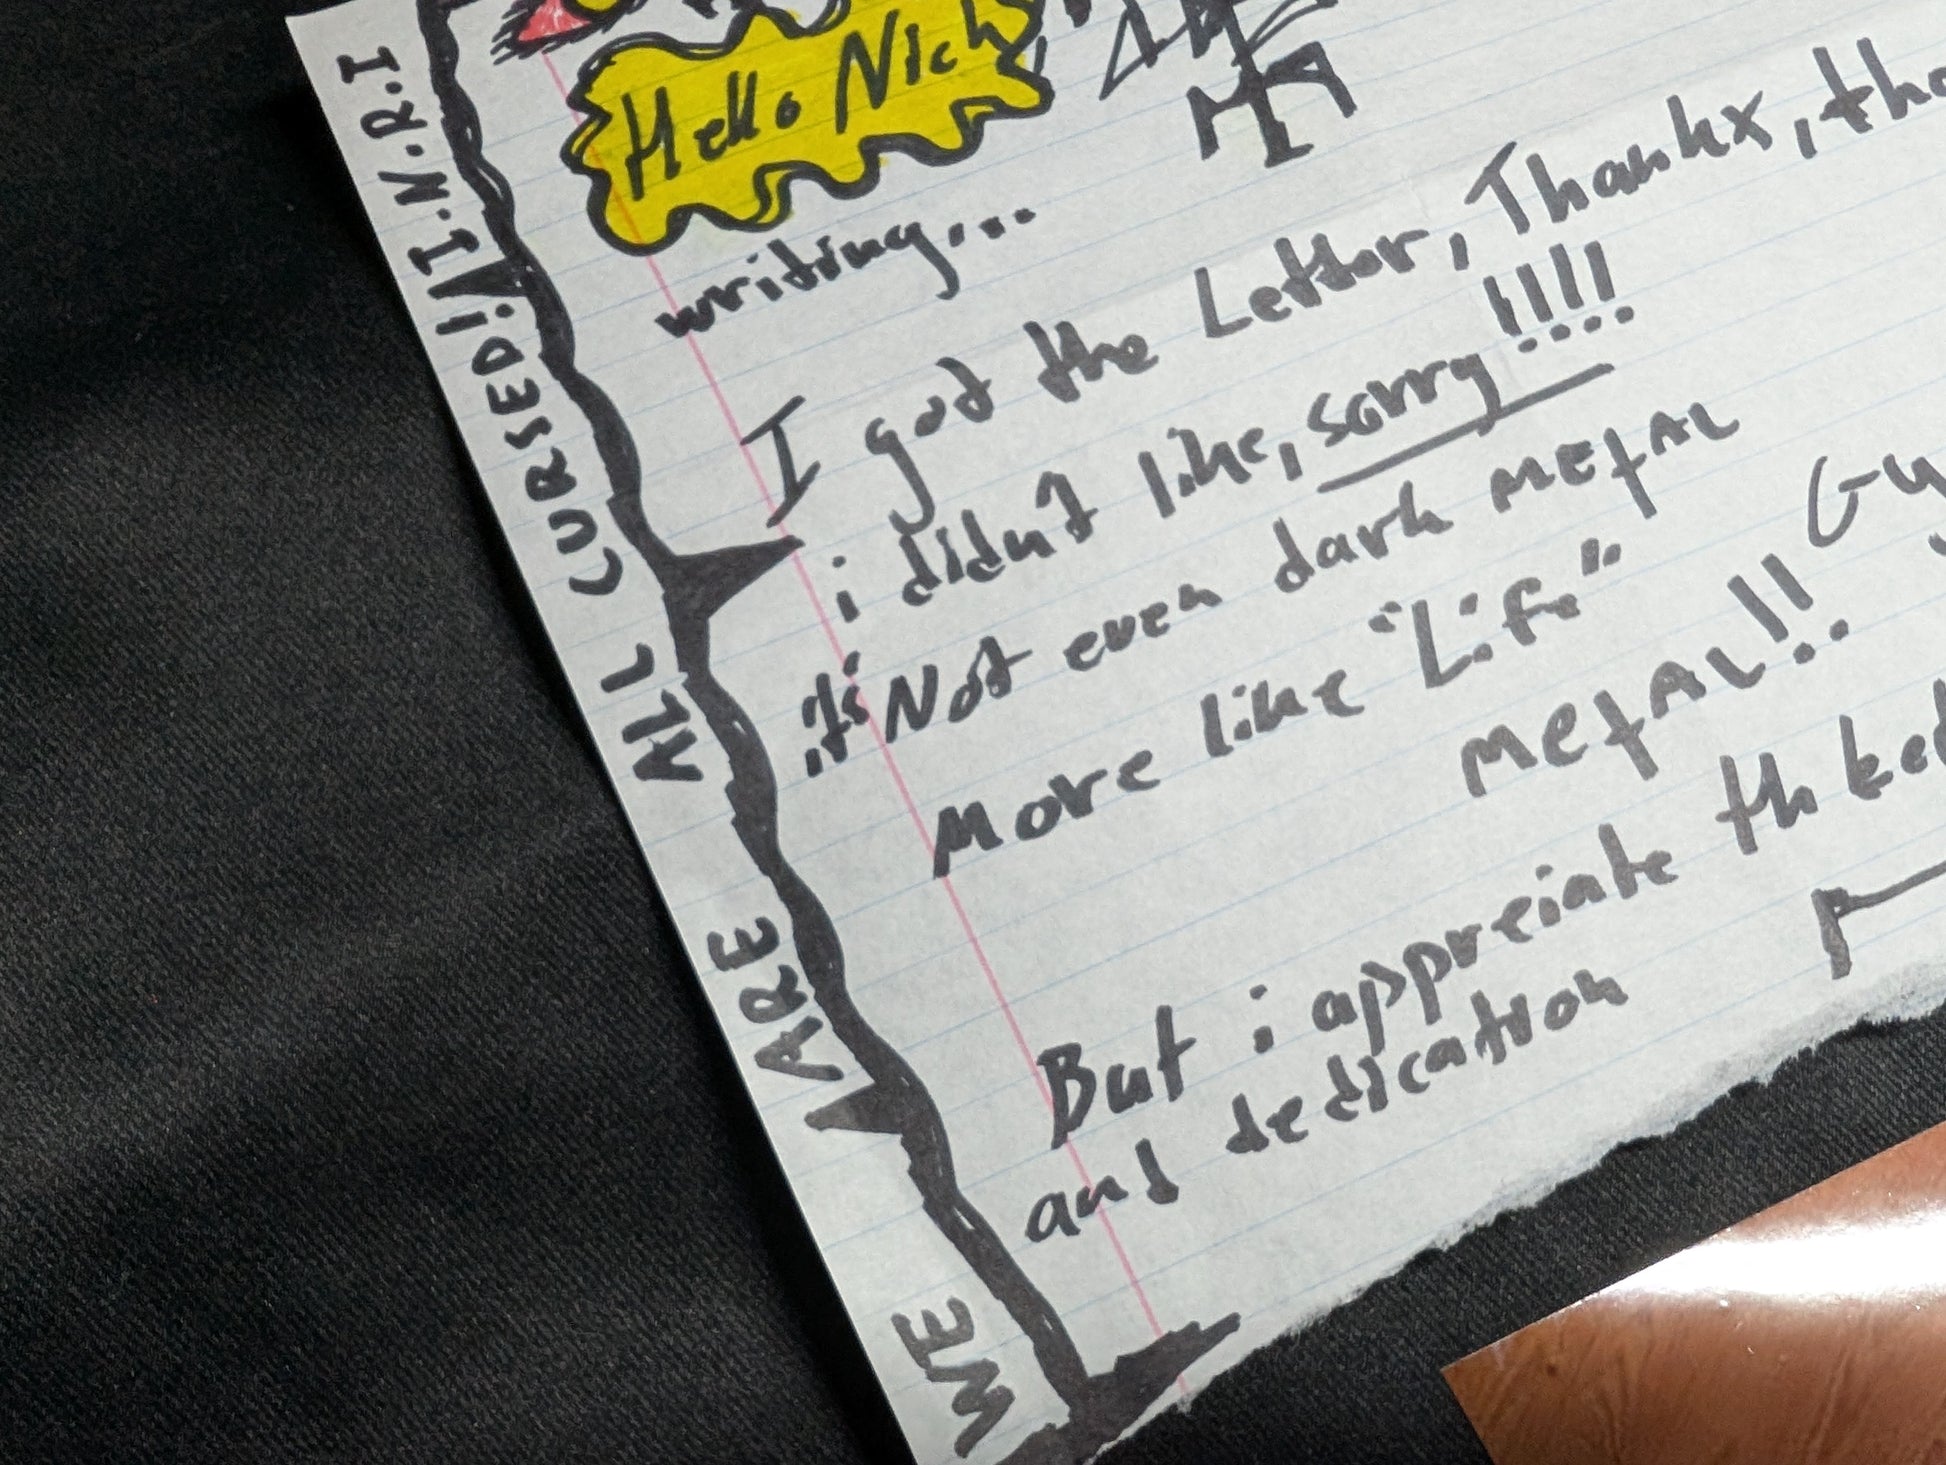 Hello Nich
writing...
I got the Letter, Thankx, tho
i didn't like, sorry!!!!
it's Not even dark METAL
More like "Life"
METAL!! Gy
But i appreciate th
and dedication
WE ARE ALL CURSED! I.N.R.I